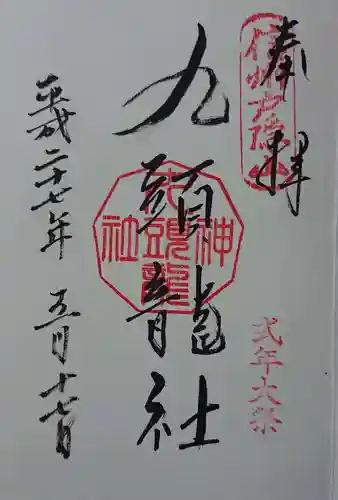 奉拝
信州戸隠山
九頭龍社
九頭龍神社
式年大祭
平成二十七年 五月十七日